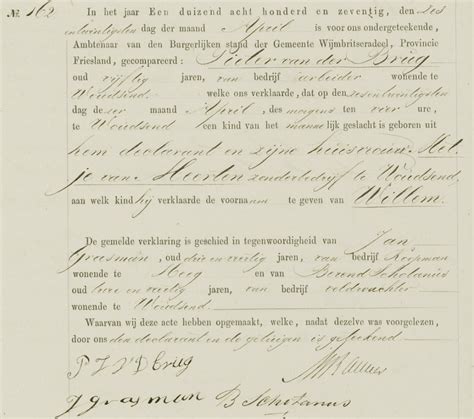 No. 162. In het jaar Een duizend acht honderd en zeventig, den zes
entwintigsten dag der maand April is voor ons ondergeteekende,
Ambtenaar van den Burgerlijken stand der Gemeente Wijmbritseradeel, Provincie
Friesland, gecompareerd: Pieter van der Brug
oud vijftig jaren, van bedrijf arbeider wonende te
Woudsend welke ons verklaarde, dat op den zesentwintigsten
dag dezer maand April, des morgens ten vier ure,
te Woudsend een kind van het mannelijk geslacht is geboren uit
hem declarant en zijne huisvrouw Het-
je van Heerten zonder bedrijf te Woudsend
aan welk kind hij verklaarde de voornaam te geven van Willem.
De gemelde verklaring is geschied in tegenwoordigheid van Jan
Grasman, oud drie en veertig jaren, van bedrijf Koopman
wonende te Heeg en van Berend Scholanus
oud twee en veertig jaren, van bedrijf veldwachter
wonende te Woudsend
Waarvan wij deze acte hebben opgemaakt, welke, nadat dezelve was voorgelezen,
door ons den declarant en de getuigen is geteekend
P J v d Brug
J Grasman B Scholanus